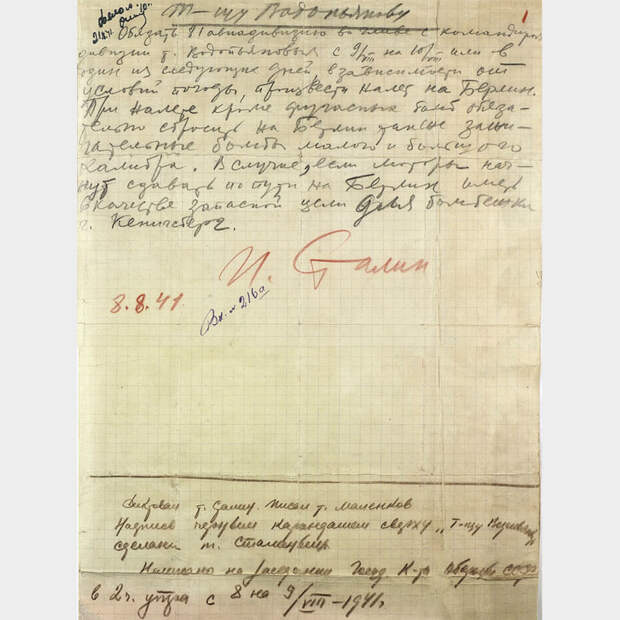 Т-щу Водопьянову
1
Обязать 81 авиадивизию во главе с командиром
дивизии т. Водопьяновым с 9/VIII на 10/VIII или в
один из следующих дней, в зависимости от
условий погоды, произвести налет на Берлин.
При налете кроме фугасных бомб обяза-
тельно сбросить на Берлин также зажи-
гательные бомбы малого и большого
калибра. В случае, если моторы нач-
нут сдавать по пути на Берлин иметь
в качестве запасной цели для бомбежки
г. Кенигсберг.
И. Сталин
8.8.41
Вх. № 216а
Диктовал т. Сталин. Писал т. Маленков
Надпись черным карандашом сверху „Т-щу Водопьянову"
сделана т. Сталиным.
Написано на заседании Госуд. К-та Обороны СССР
в 2 ч. утра с 8 на 9/VIII-1941 г.